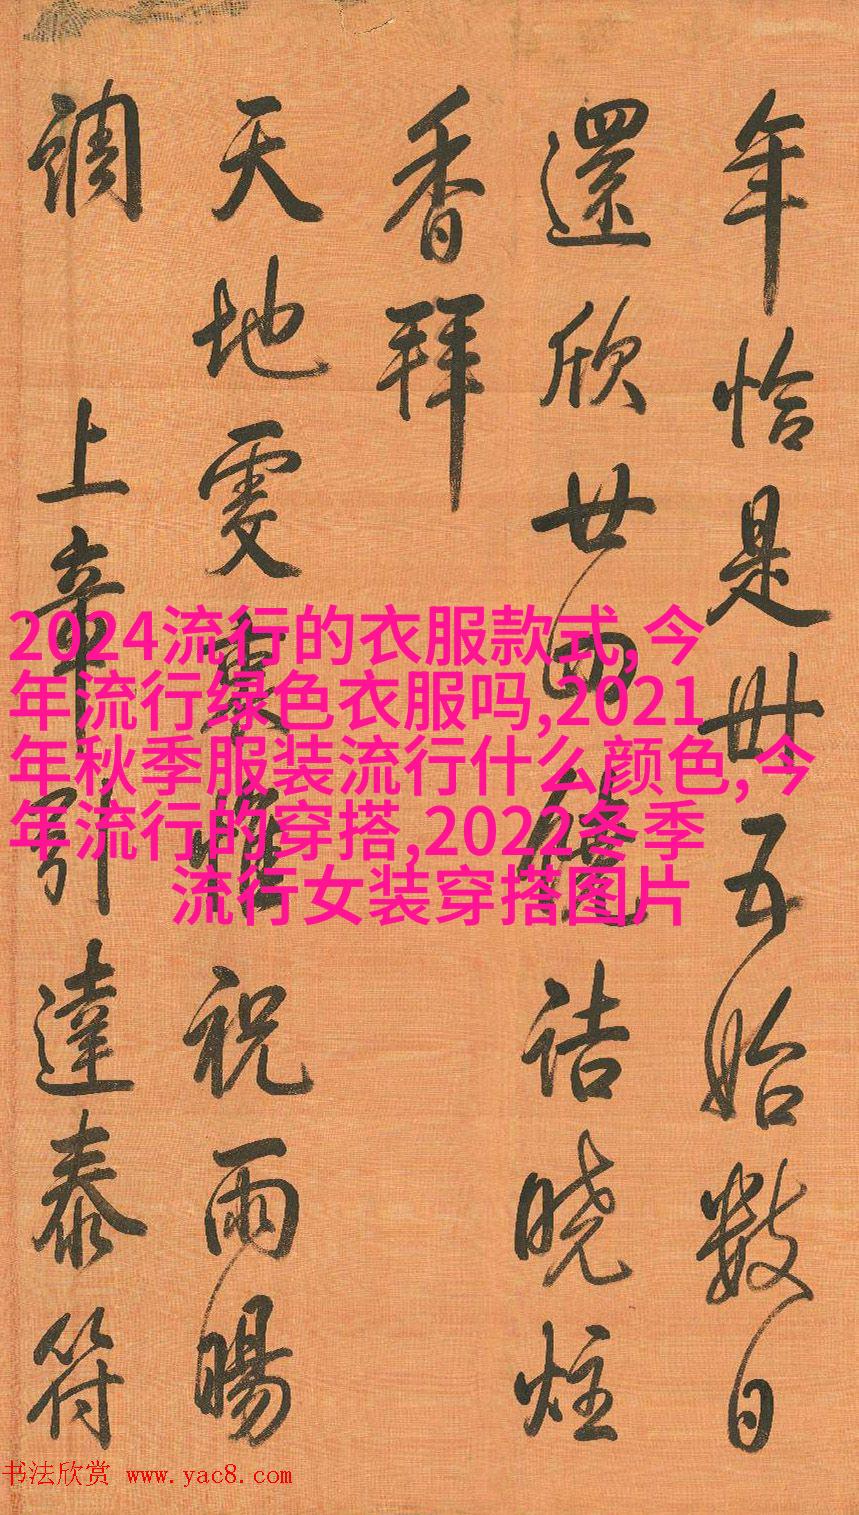 年恰是卅五始數日
還欣廿四詰曉炷
香拜
天地虔衷惟祝雨暘
調上辛引達泰符
2024流行的衣服款式,今
年流行绿色衣服吗,2021
年秋季服装流行什么颜色,今
年流行的穿搭,2022冬季
流行女装穿搭图片
书法欣赏 www.yac8.com